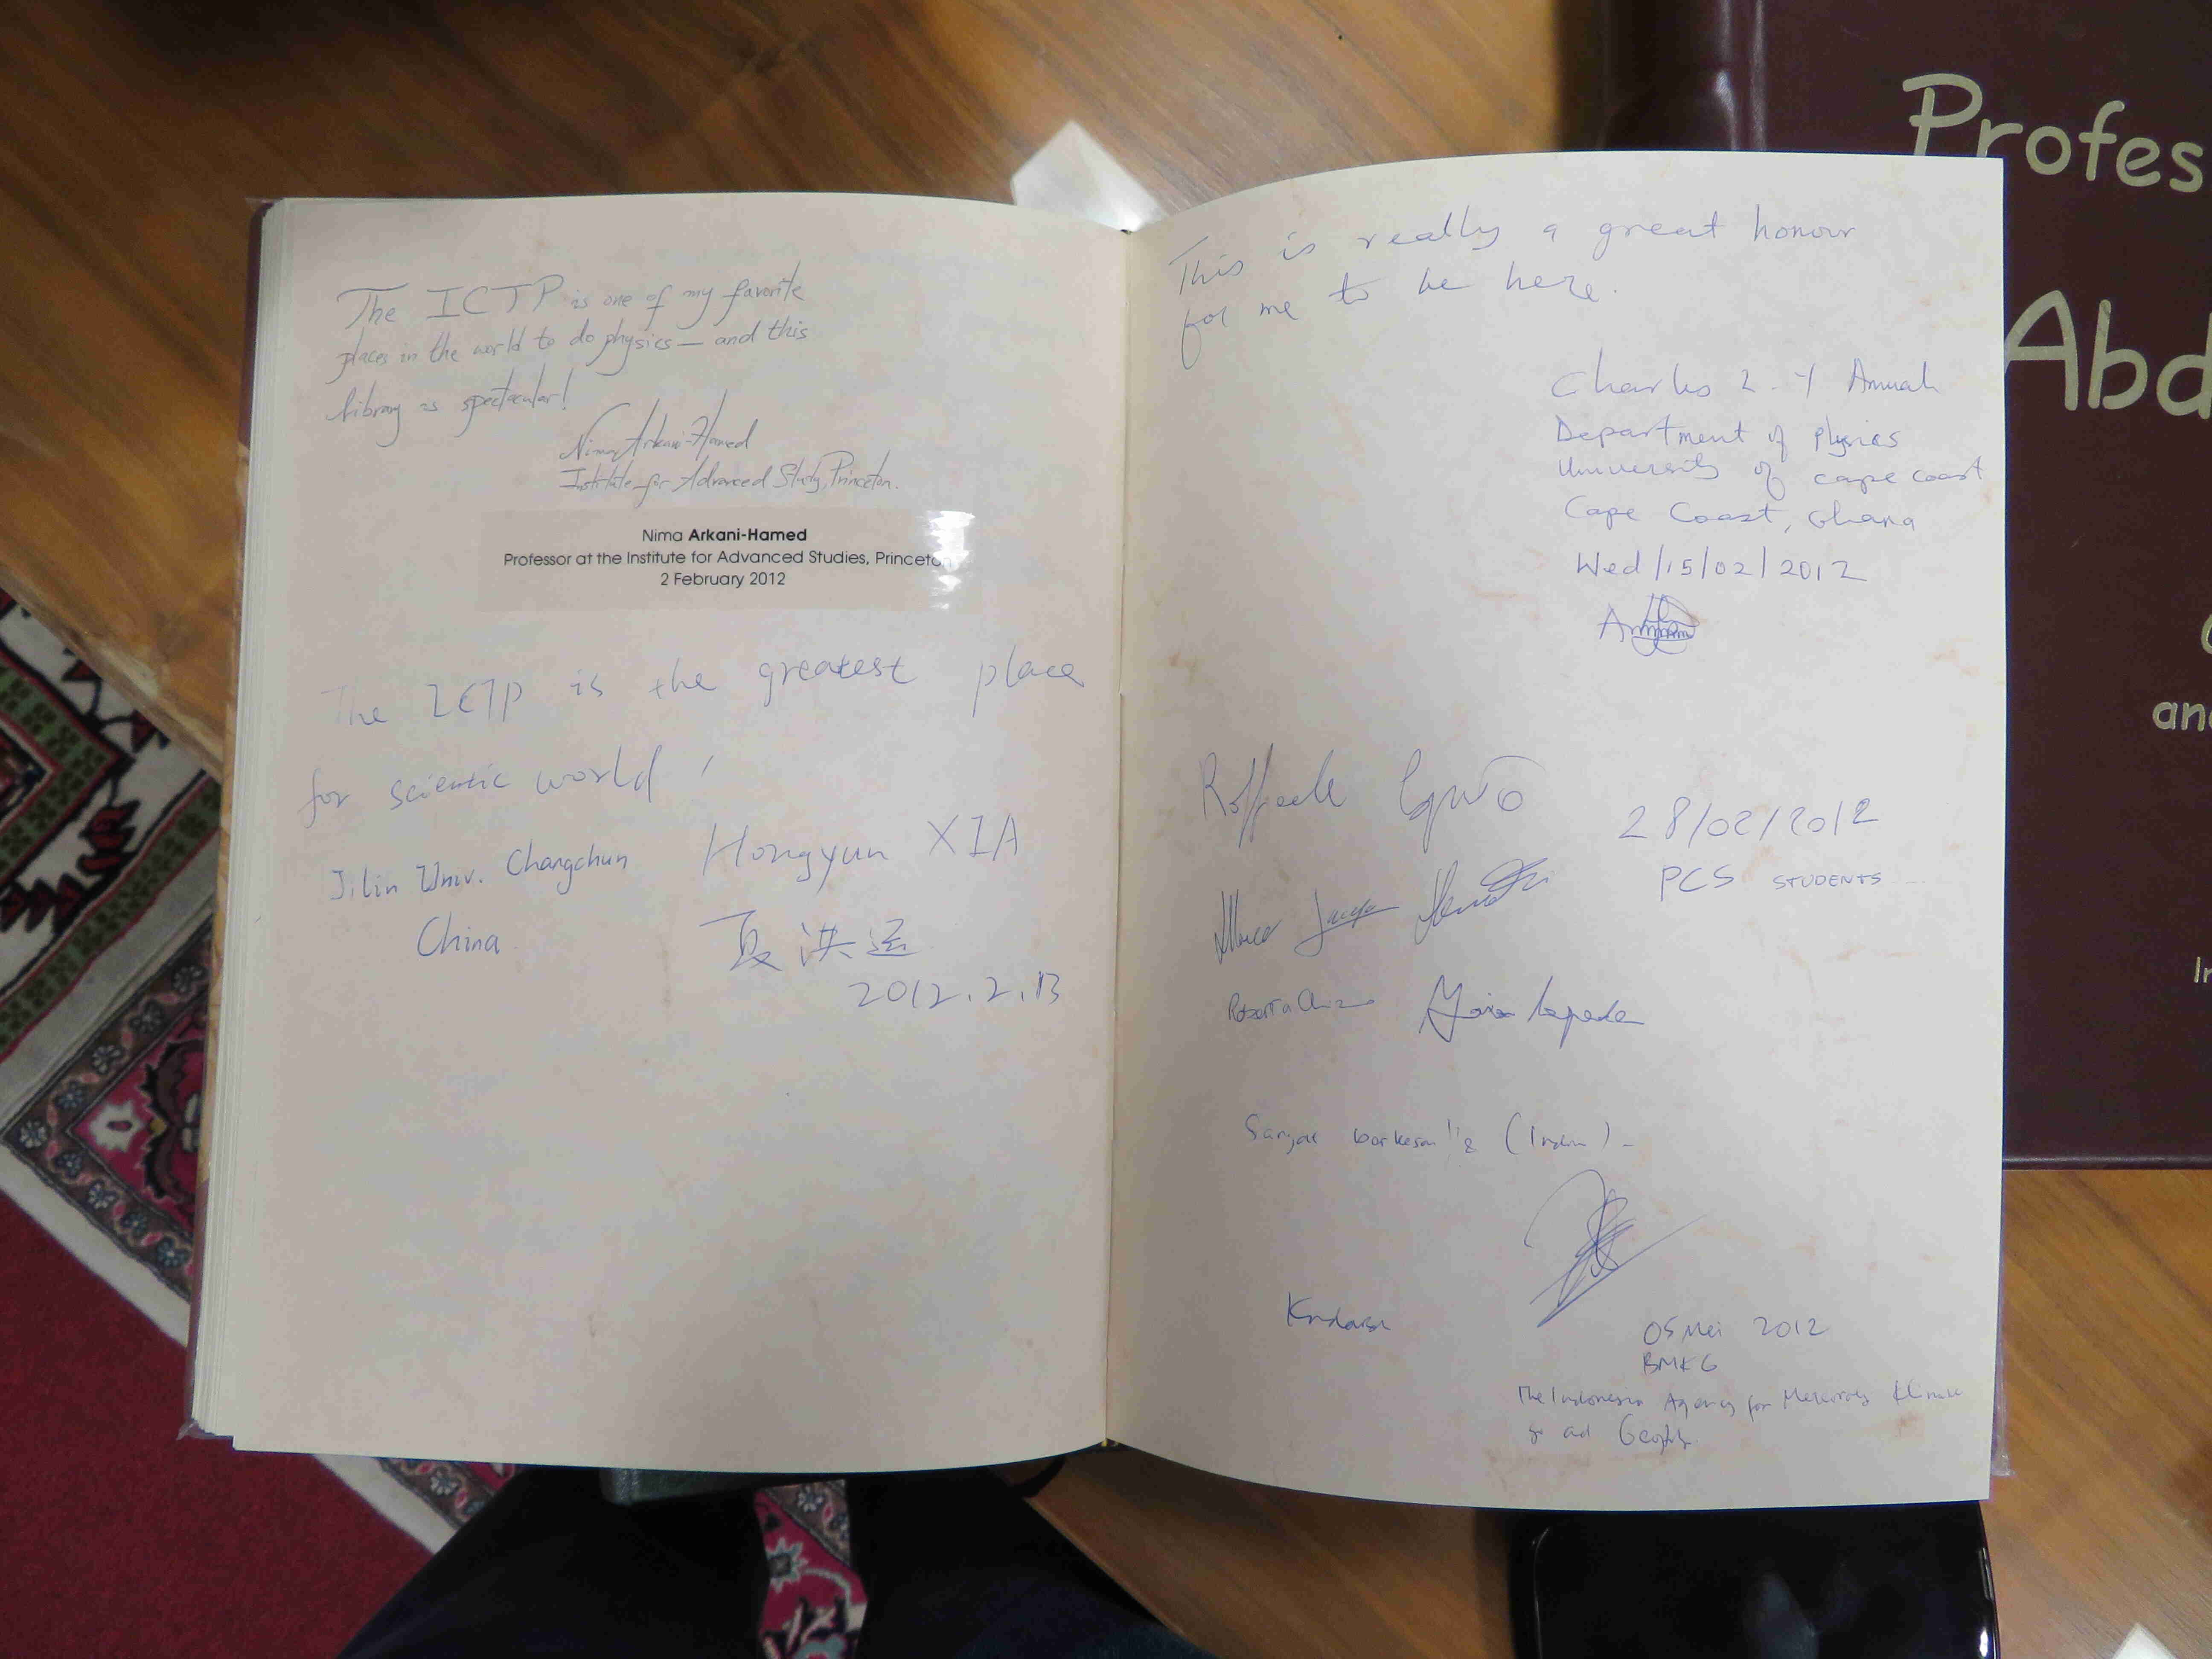 The ICTP is one of my favorite
places in the world to do physics — and this
library is spectacular!
Nima Arkani-Hamed
Institute for Advanced Study, Princeton.
Nima Arkani-Hamed
Professor at the Institute for Advanced Studies, Princeton
2 February 2012
The ICTP is the greatest place
for scientic world !
Jilin Univ. Changchun
China
Hongyun XIA
夏洪运
2012.2.13
This is really a great honour
for me to be here.
Charles L. Y Amuah
Department of Physics
University of Cape Coast
Cape Coast, Ghana
Wed/15/02/2012
Raffaele
28/02/2012
PCS STUDENTS
Roberta
(India) -
05 Mei 2012
BMKG
The Indonesia Agency for
ad
Profes
Abd
an